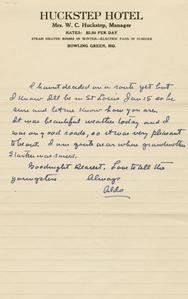 HUCKSTEP HOTEL
Mrs. W. C. Huckstep, Manager
RATES: $2.50 PER DAY
STEAM HEATED ROOMS IN WINTER—ELECTRIC FANS IN SUMMER
BOWLING GREEN, MO.
I havnt decided on a route yet but
I know I'll be in St Louis Jan 15 so be
sure and let me know how you are.
It was beautiful weather today and I
was on good roads, so it was very pleasant
to be out. I am quite near where grandmother
was
Goodnight Dearest, Love to all the
youngsters Always
Aldo